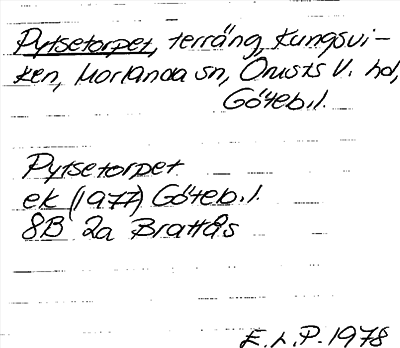 Pytsetorpet, terräng, Kungsvi-
ken, Morlanda sn, Orusts V. hd,
Göteb.l.
Pytsetorpet
ek (1977) Göteb.l.
8B 2a Brattås
E.L.P. 1978